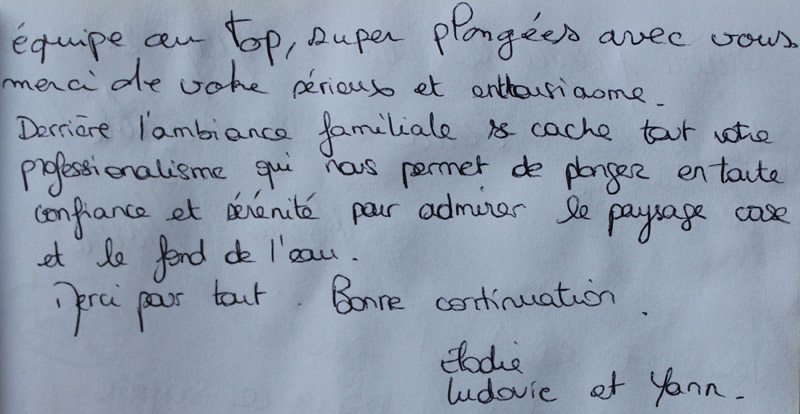 équipe au top, super plongées avec vous
merci de votre sérieux et enthousiasme.
Derrière l'ambiance familiale se cache tout votre
professionalisme qui nous permet de plonger en toute
confiance et sérénité pour admirer le paysage
et le fond de l'eau.
Merci pour tout. Bonne continuation.
Élodie
Ludovic et Yann.